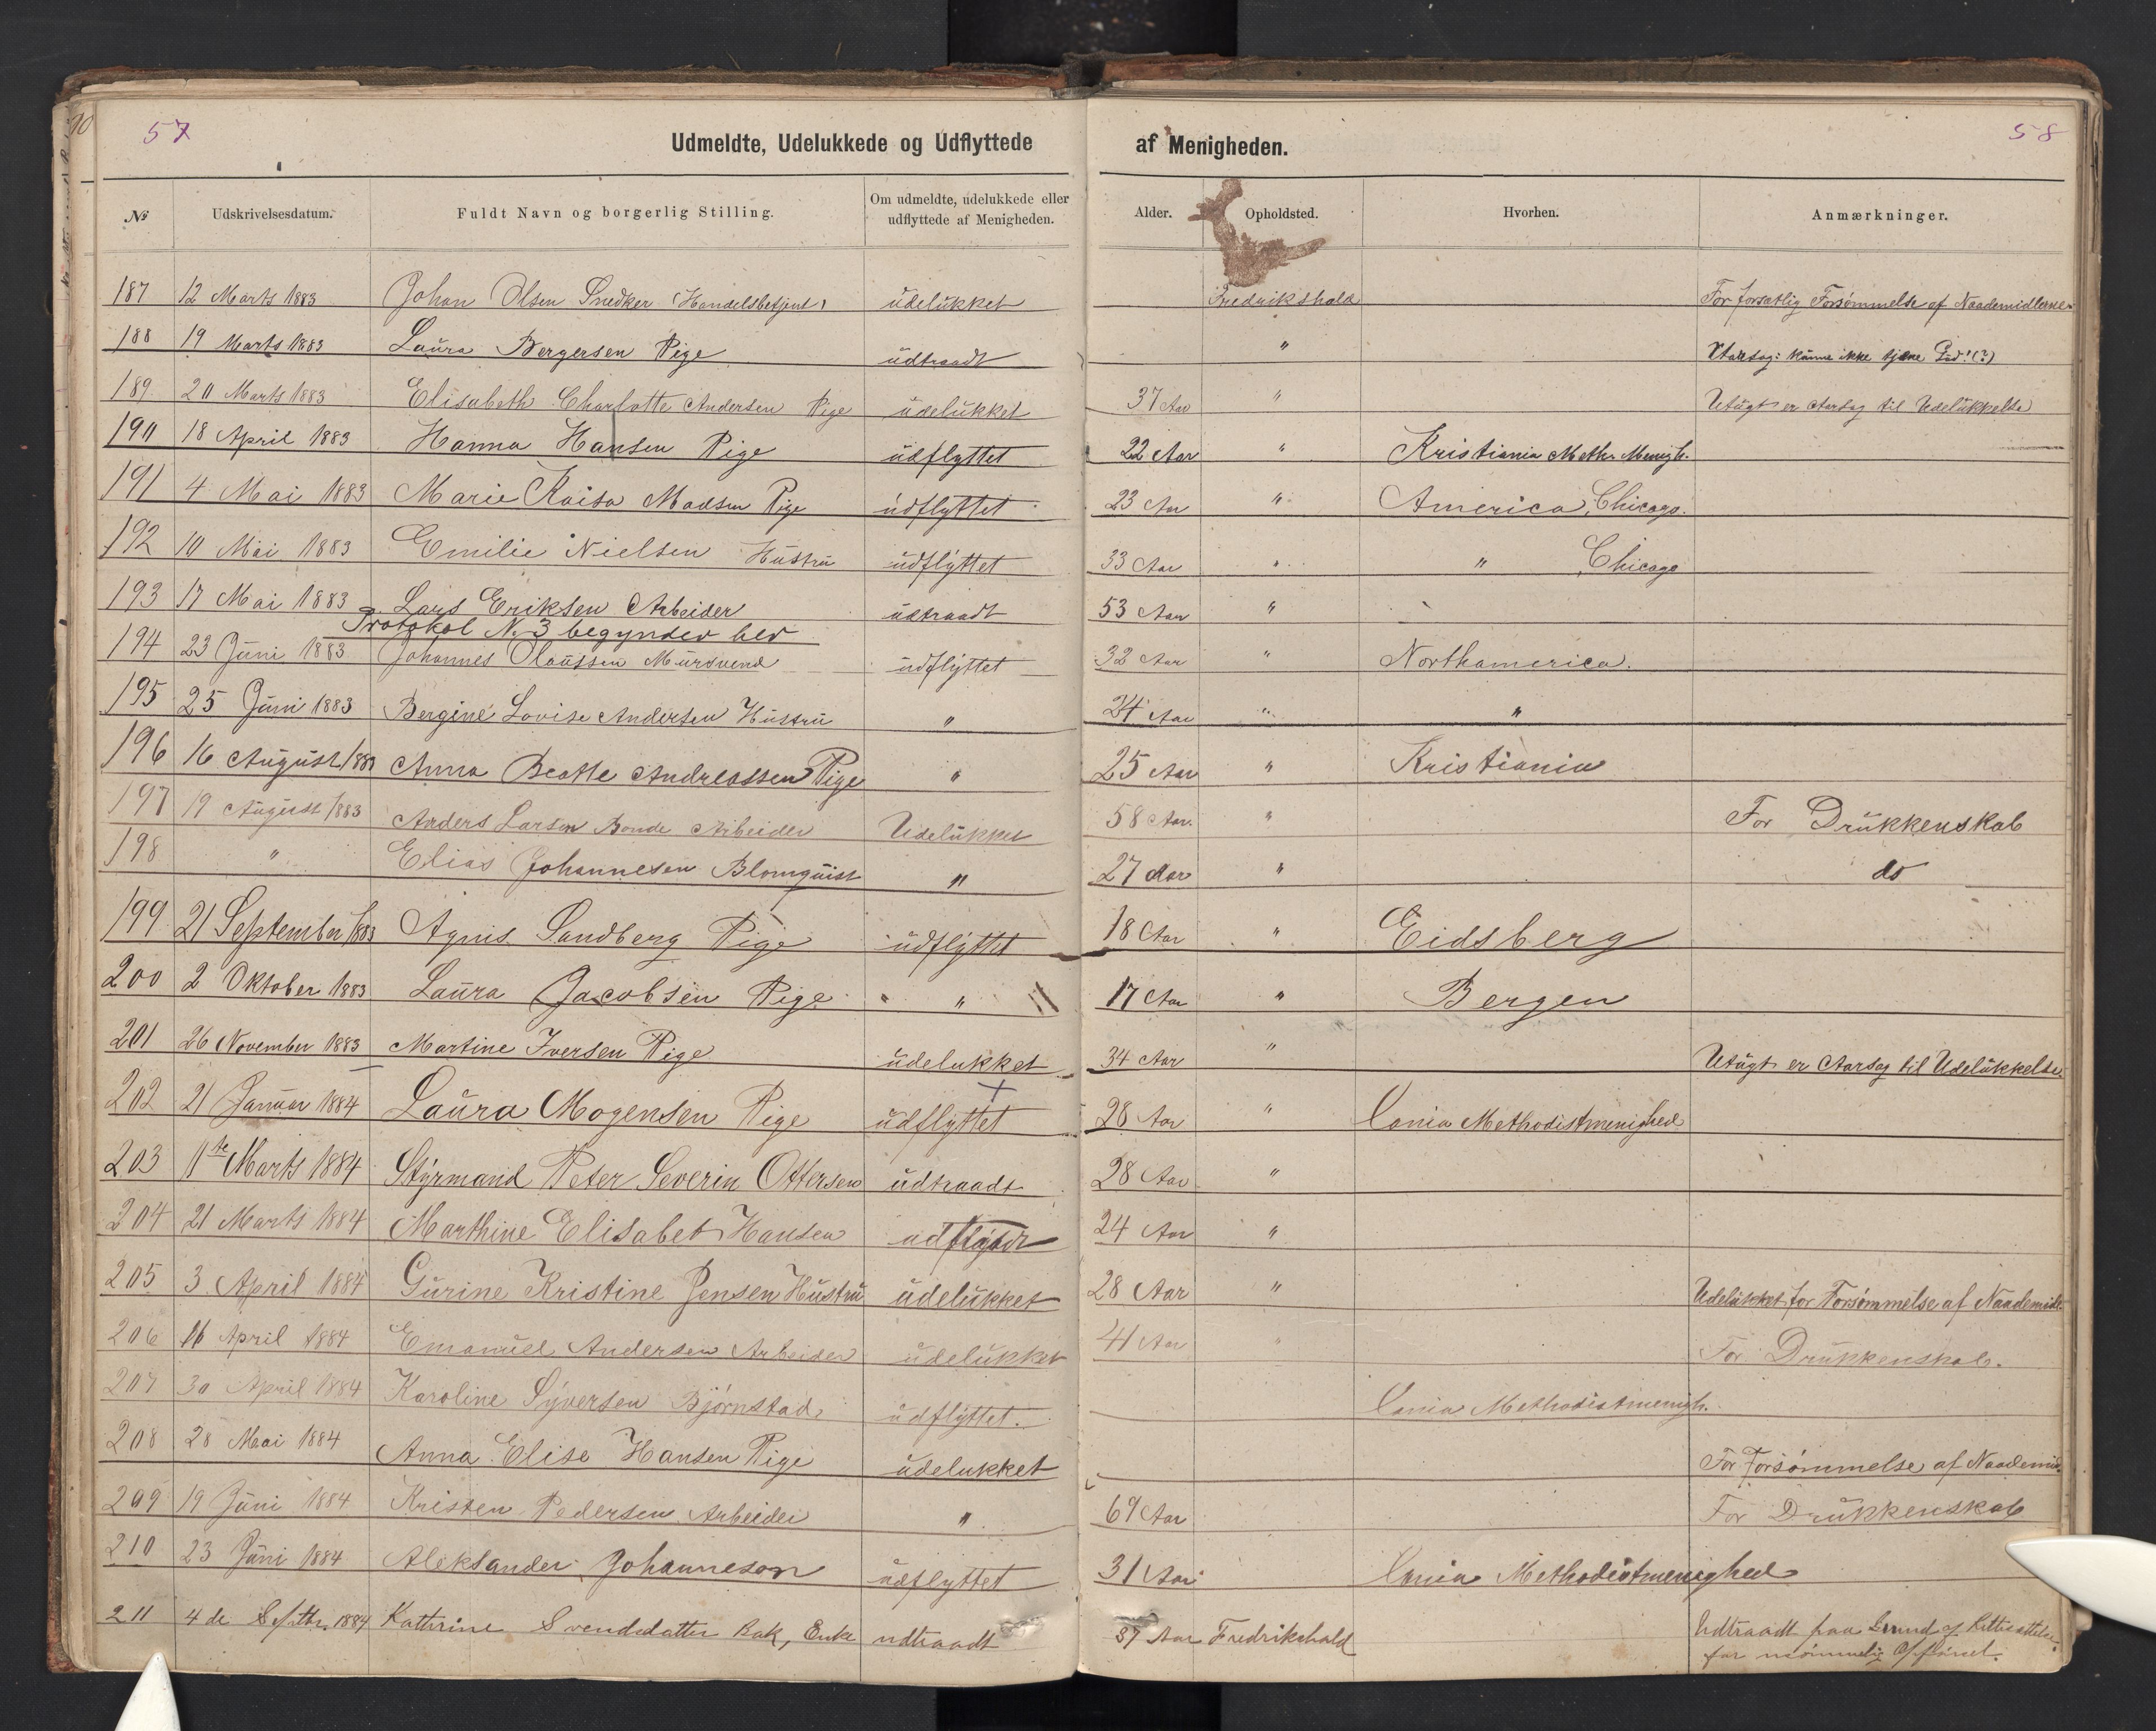 90
57
58
Udmeldte, Udelukkede og Udflyttede af Menigheden.
No Udskrivelsesdatum. Fuldt Navn og borgerlig Stilling. Om udmeldte, udelukkede eller udflyttede af Menigheden. Alder. Opholdsted. Hvorhen. Anmærkninger.
187 12 Marts 1883 Johan Olsen Snedker (Handelsbetjent) udelükket Fredrikshald For forsætlig Forsømmelse af Naademidlerne
188 19 Marts 1883 Laura Bergersen Pige üdtraadt " Aarsag: kunne ikke tjene Gud! (?)
189 20 Marts 1883 Elisabeth Charlotte Andersen Pige üdelükket 37 Aar " Utügt er Aarsag til Udelükkelse
190 18 April 1883 Hanna Hansen Pige üdflyttet 22 Aar " Kristiania Meth. Menigh.
191 4 Mai 1883 Marie Kaisa Madsen Pige üdflyttet 23 Aar " America, Chicago.
192 10 Mai 1883 Emilie Nielsen Hüstrü üdflyttet 33 Aar " " Chicago
193 17 Mai 1883 Lars Eriksen Arbeider üdtraadt 53 Aar "
Protokol N. 3 begynder her
194 23 Juni 1883 Johannes Olaüssen Mürsvend üdflyttet 32 Aar " Northamerica.
195 25 Jüni 1883 Bergine Lovise Andersen Hüstrü " 34 Aar " "
196 16 August 1883 Anna Beatte Andreassen Pige " 25 Aar " Kristiania
197 19 August 1883 Anders Larsen Bonde Arbeider Udelükket 58 Aar. " For Drükkenskab
198 " Elias Johannesen Blomquist " 27 Aar " do
199 21 September 1883 Agnis Sandberg Pige üdflyttet 18 Aar " Eidsberg
200 2 Oktober 1883 Laüra Jacobsen Pige " " 17 Aar " Bergen
201 26 November 1883 Martine Iversen Pige üdelukket 34 Aar " Utügt er Aarsag til Udelükkelse
202 21 Januar 1884 Laüra Mogensen Pige üdflyttet 28 Aar " Cania Methodistmenighed
203 11te Marts 1884 Styrmand Peter Severin Ottersen üdtraadt 28 Aar "
204 21 Marts 1884 Marthine Elisabet Hansen 24 Aar "
205 3 April 1884 Gürine Kristine Jensen Hüstrü üdelükket 28 Aar " Udelükket for Forsømmelse af Naademidl.
206 16 April 1884 Emanuel Andersen Arbeider üdelükket 41 Aar " For Drükkenskab.
207 30 April 1884 Karoline Syversen Bjørnstad üdflyttet. Cania Methodistmenigh.
208 28 Mai 1884 Anna Elise Hansen Pige üdelukket For Forsømmelse af Naademid.
209 19 Jüni 1884 Kristen Pedersen Arbeider " 69 Aar For Drükkenskab
210 23 Jüni 1884 Aleksander Johanneson üdflyttet 31 Aar Cania Methodistmenighed
211 4de Septbr. 1884 Kathrine Svendsdatter Bak, Enke udtraadt 37 Aar Fredrikshald Udtraadt paa Grund af
for usømmelig Opførsel.